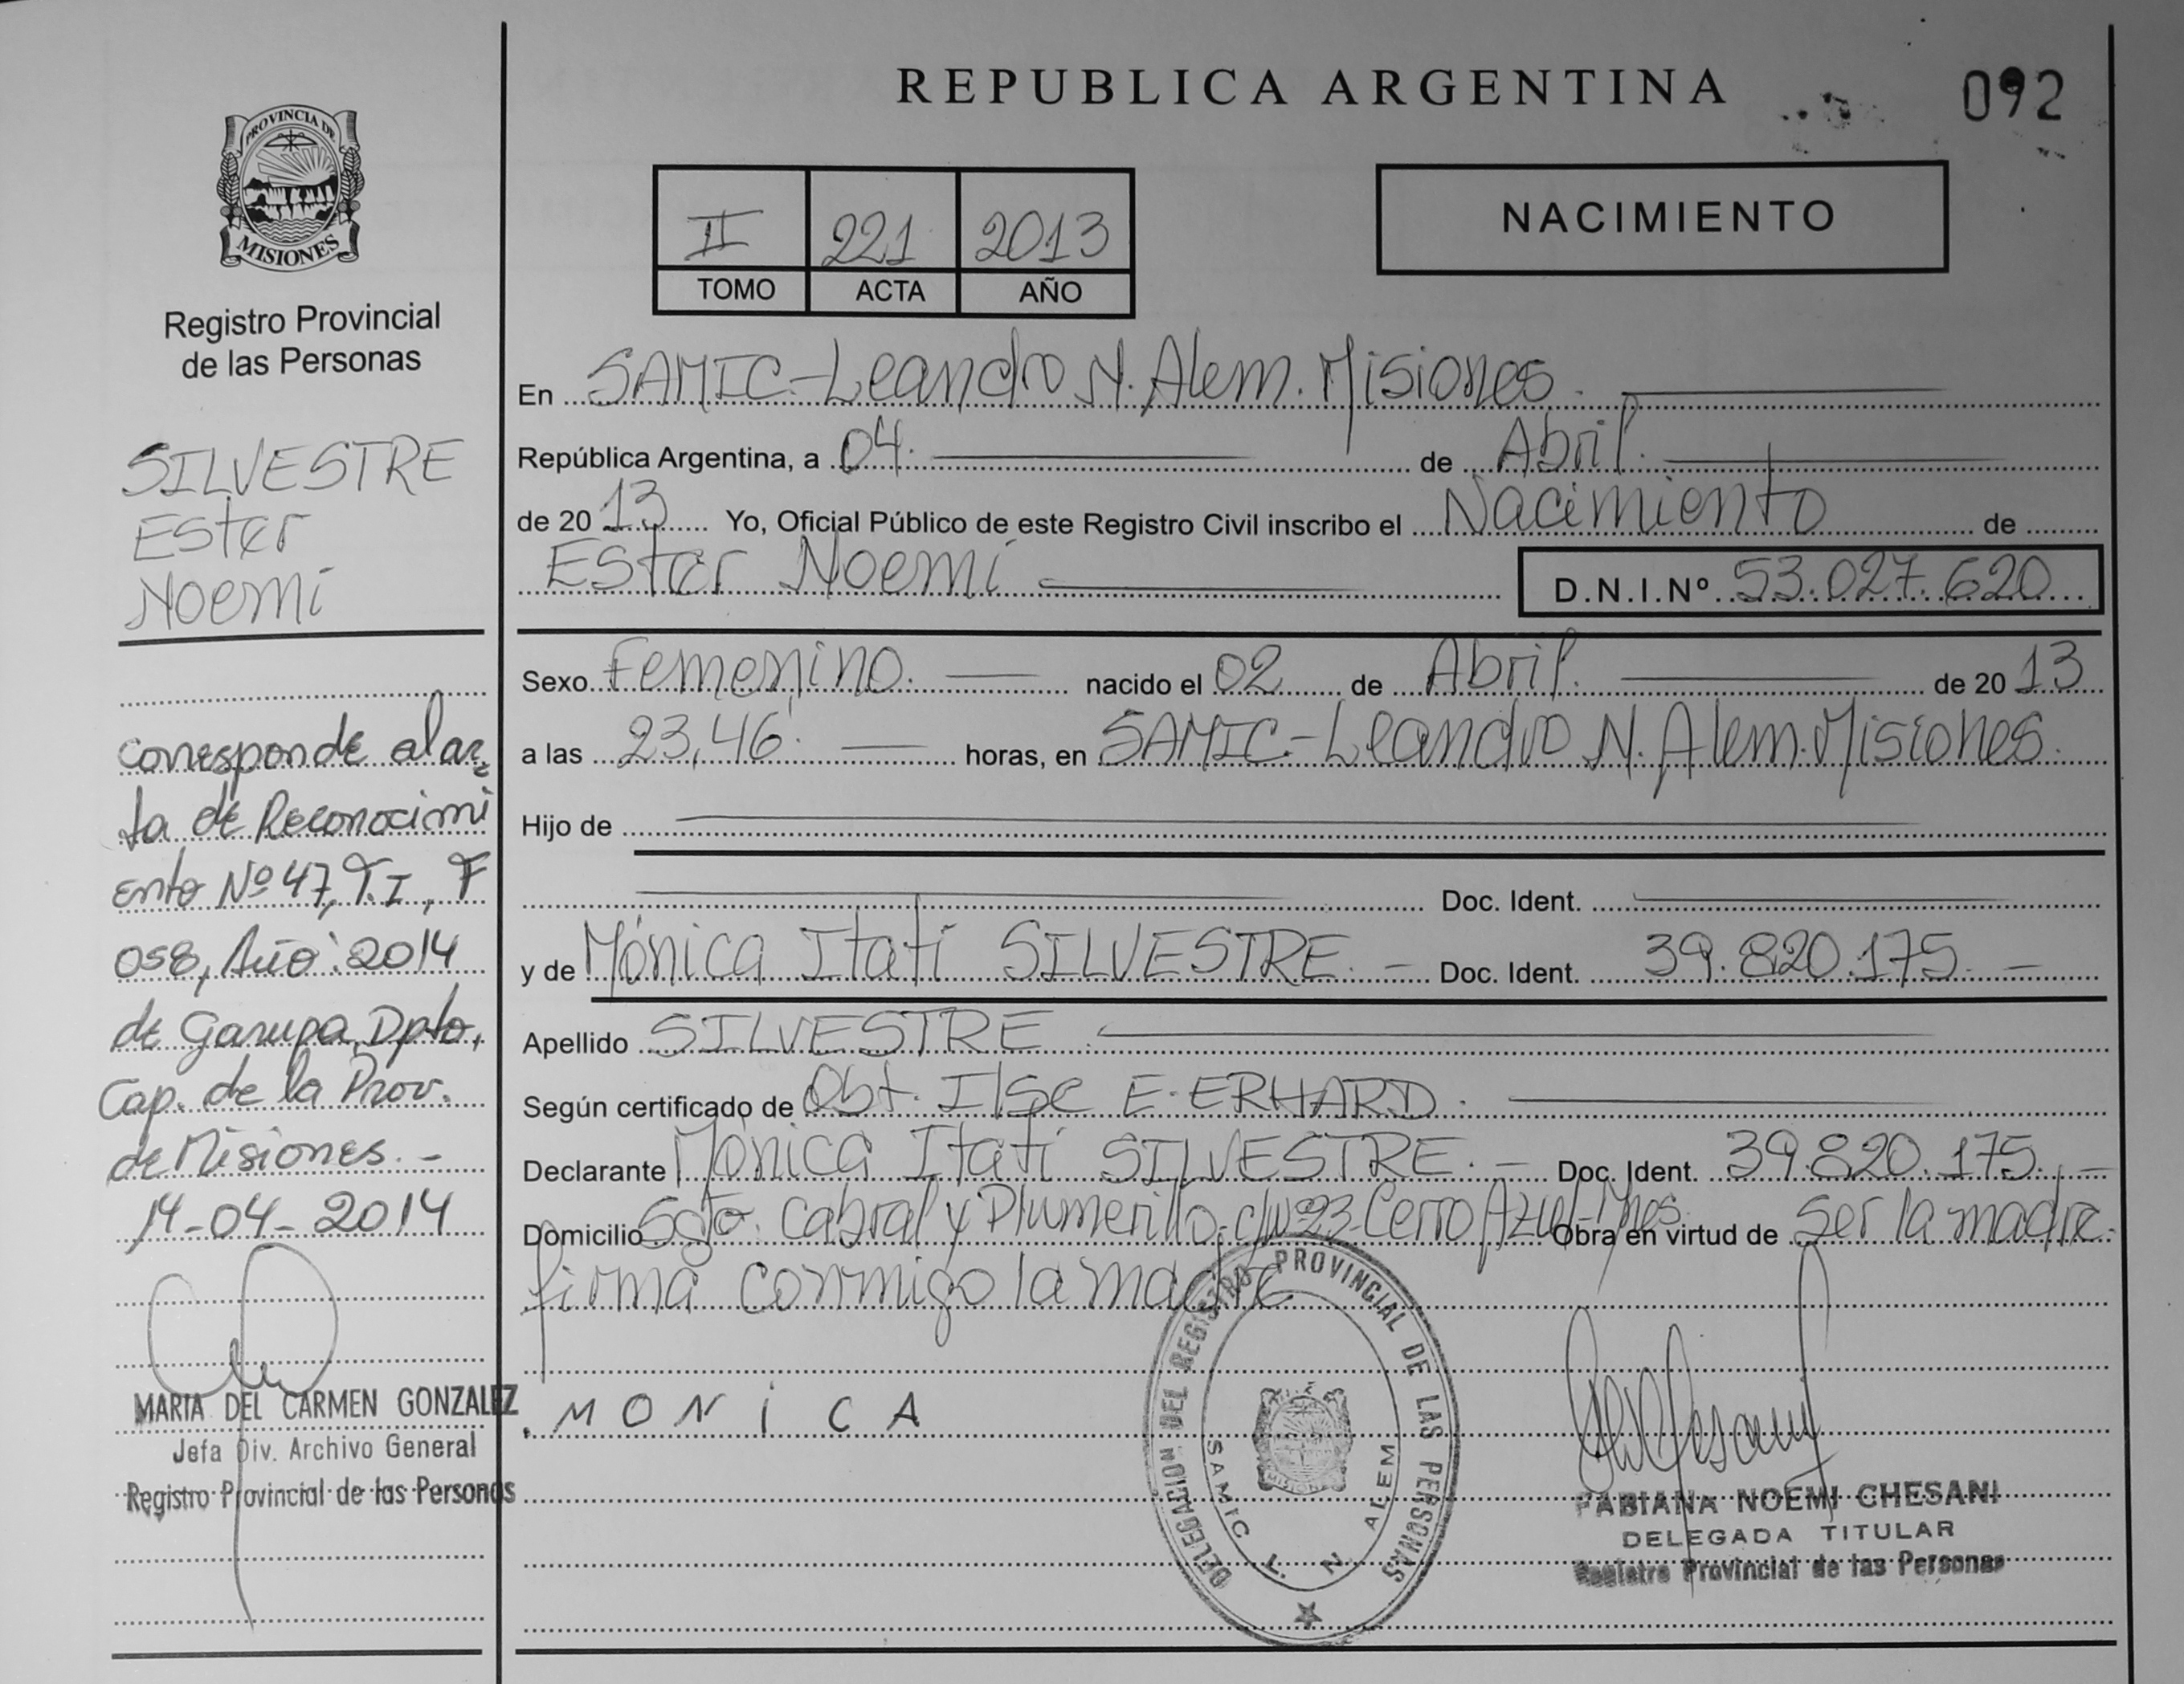 REPUBLICA ARGENTINA
092
PROVINCIA DE
MISIONES
Registro Provincial
de las Personas
II 221 2013
TOMO ACTA AÑO
NACIMIENTO
SILVESTRE
Ester
Noemí
corresponde al ac
ta de Reconocimi
ento Nº 47, T. I, F
058, Año: 2014
de Garupa, Dpto,
Cap. de la Prov.
de Misiones. -
14-04-2014
MARIA DEL CARMEN GONZALEZ
Jefa Div. Archivo General
Registro Provincial de las Personas
En SAMIC-Leandro N. Alem. Misiones.
República Argentina, a 04. de Abril.
de 20 13 Yo, Oficial Público de este Registro Civil inscribo el Nacimiento de
Ester Noemí D.N.I.Nº 53.027.620
Sexo Femenino. nacido el 02 de Abril. de 20 13
a las 23,46. horas, en SAMIC.-Leandro N. Alem. Misiones.
Hijo de
Doc. Ident.
y de Mónica Itatí SILVESTRE. - Doc. Ident. 39.820.175. -
Apellido SILVESTRE.
Según certificado de Obst. Ilse E. ERHARD.
Declarante Mónica Itatí SILVESTRE. - Doc. Ident. 39.820.175. -
Domicilio Sgto. Cabral y Plumerillo. c/nº 23-Cerro Azul-Mnes. Obra en virtud de Ser la madre.
firma conmigo la madre
MONiCA
DELEGACION DEL REGISTRO PROVINCIAL DE LAS PERSONAS
SAMIC L. N. ALEM
MISIONES
FABIANA NOEMI CHESANI
DELEGADA TITULAR
Registro Provincial de las Personas